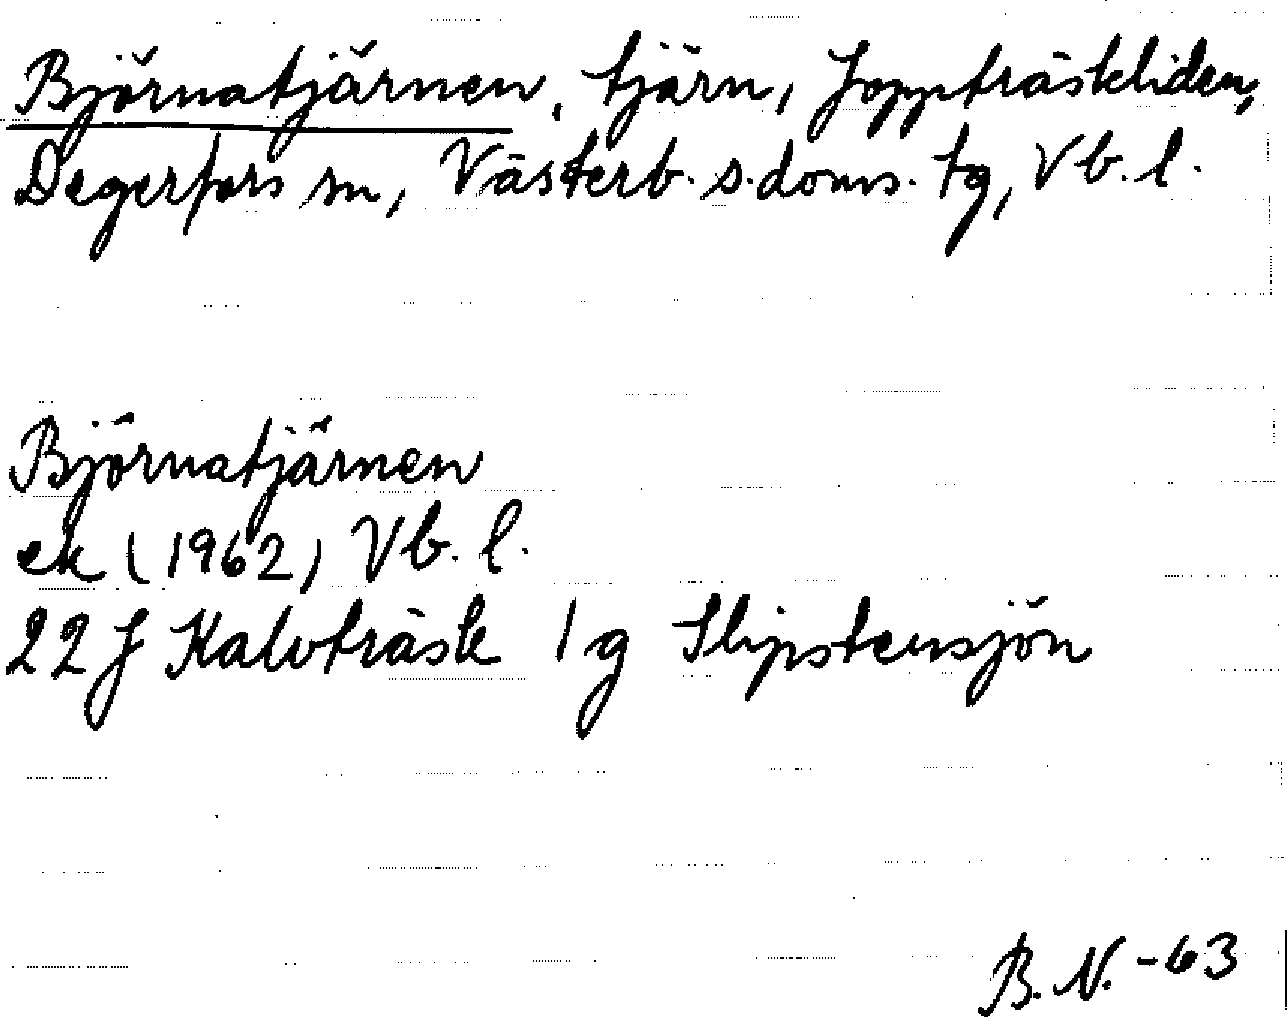 Björnatjärnen, tjärn, Joppträskliden,
Degerfors sn, Västerb. s. doms. tg, Vb. l.
Björnatjärnen
ek (1962) Vb. l.
22 J Kalvträsk 1 g Slipstensjön
B. N. -63